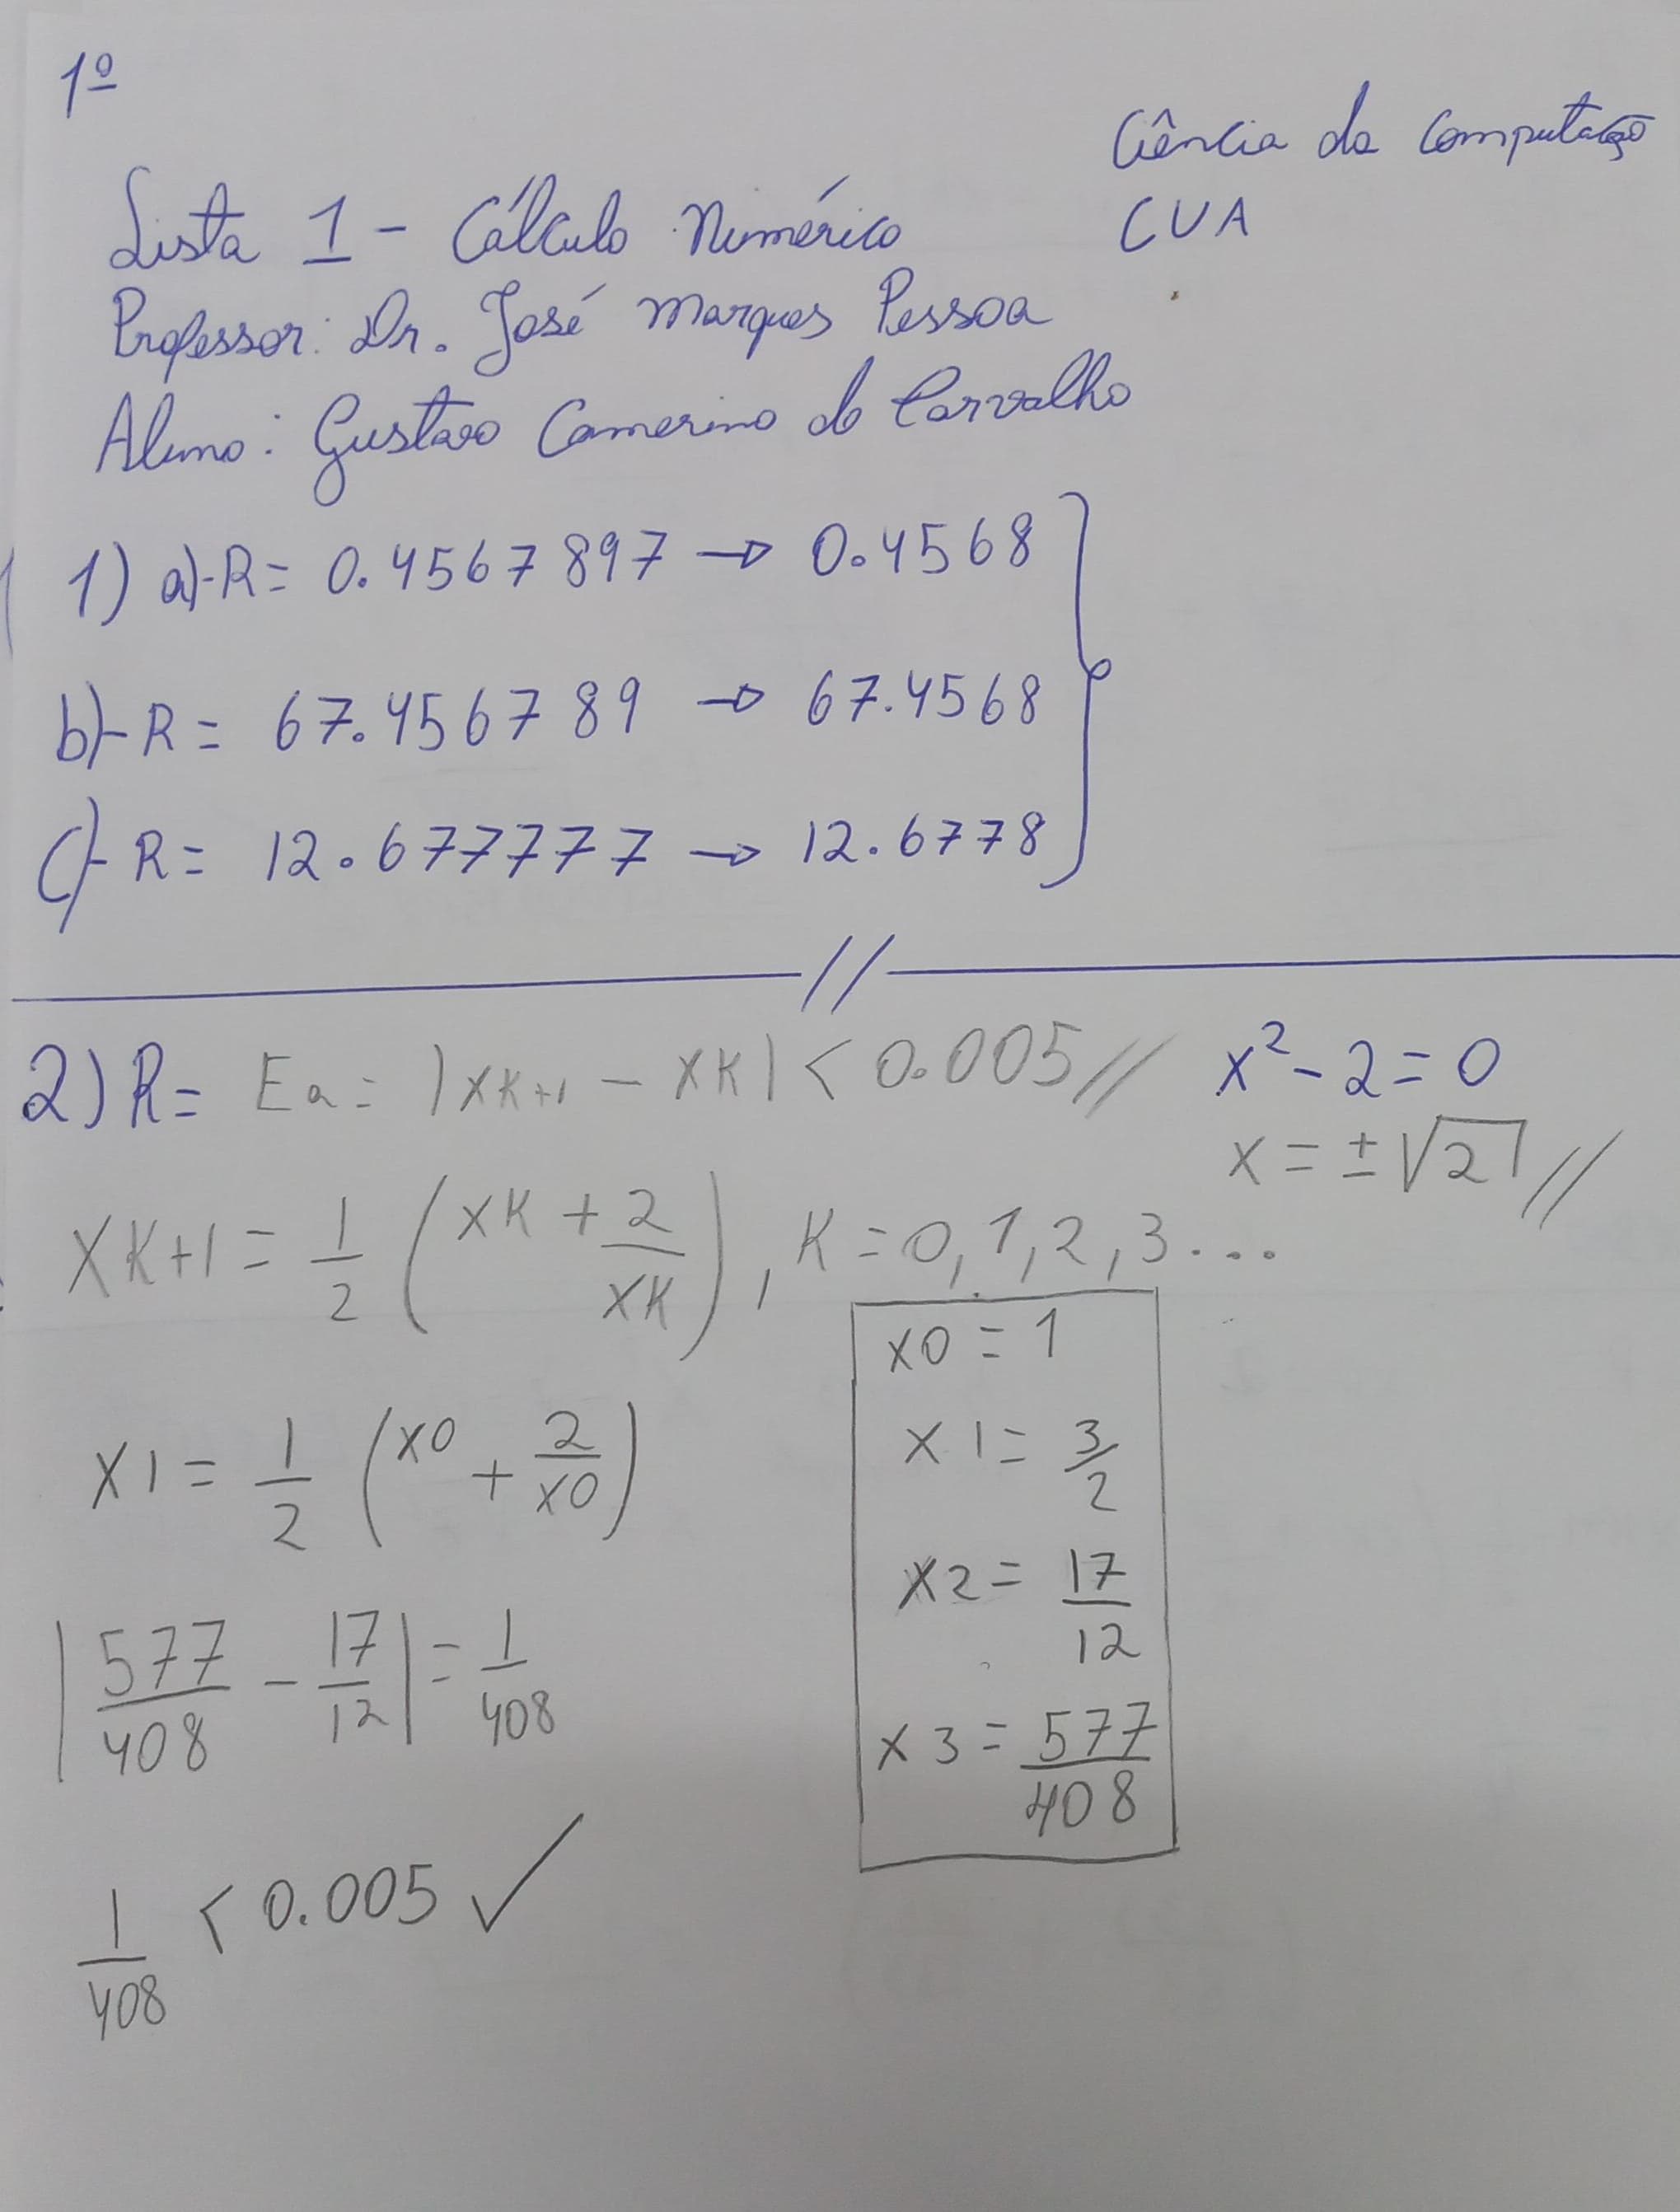 1º
Ciência da Computação
CUA
Lista 1 - Cálculo Numérico
Professor: Dr. José Marques Pessoa
Aluno: Gustavo Camerino de Carvalho
1) a)-R = 0.4567897 → 0.4568
b)-R = 67.456789 → 67.4568
c)-R = 12.677777 → 12.6778
//
2) R = Ea = |xK+1 - XK| < 0.005// x² - 2 = 0
x = ±√2//
XK+1 = 1/2 (XK + 2/XK), K = 0, 1, 2, 3...
x0 = 1
X1 = 1/2 (x0 + 2/x0)
x1 = 3/2
x2 = 17/12
|577/408 - 17/12| = 1/408
x3 = 577/408
1/408 < 0.005 ✓